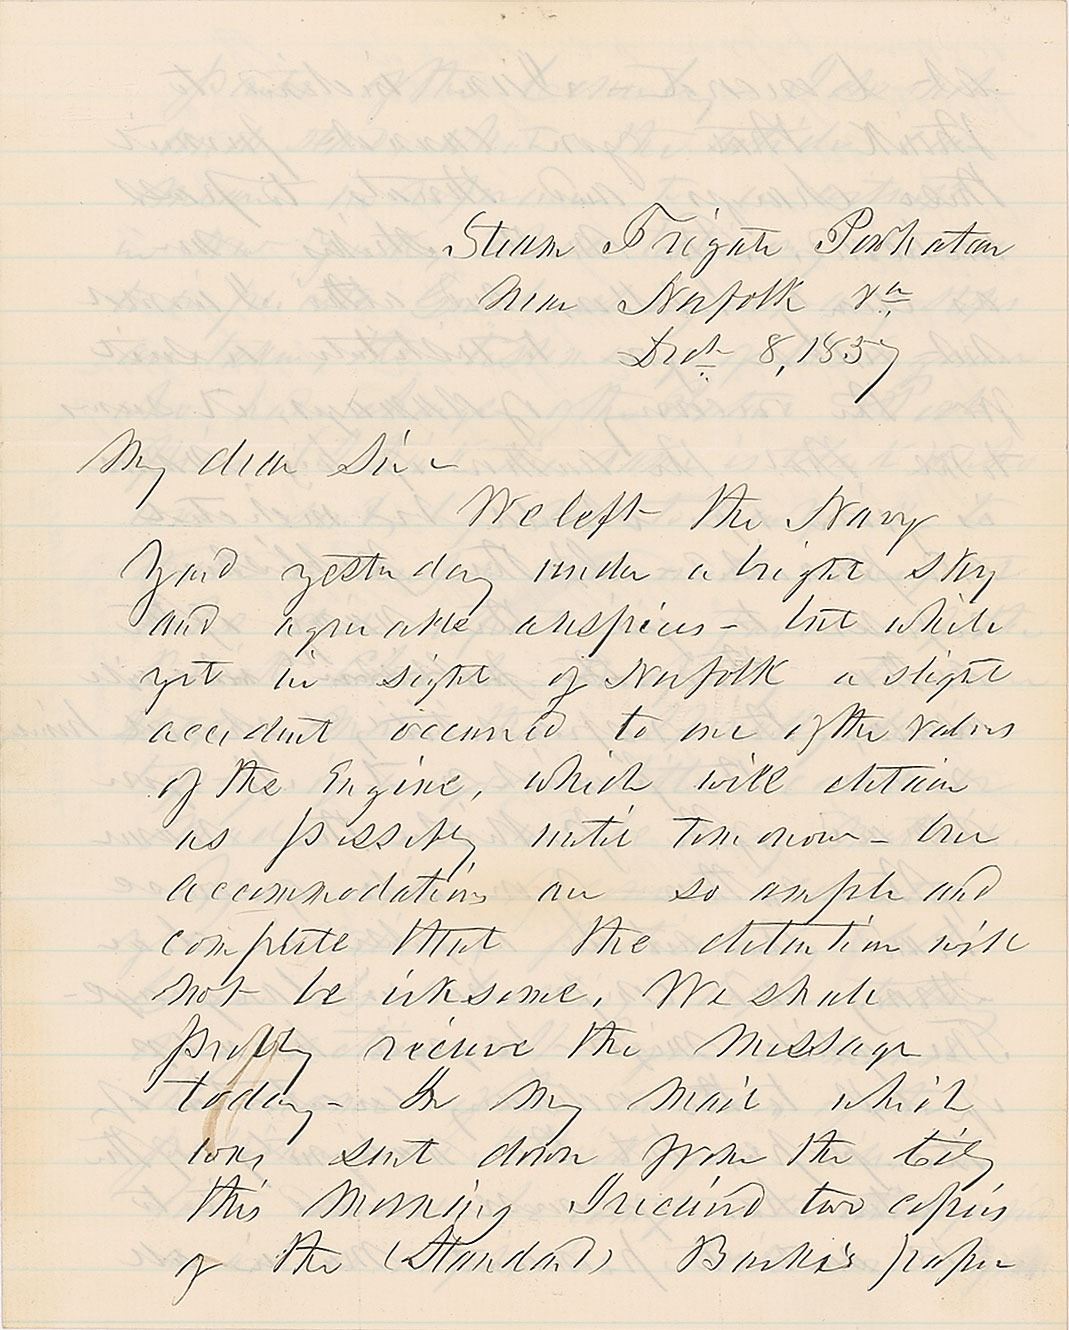 Steam Frigate Powhatan
Near Norfolk Va
Decr 8, 1857
My dear Sir -
We left the Navy
Yard yesterday under a bright sky
and agreeable auspices - but while
yet in sight of Norfolk a slight
accident occurred to one of the valves
of the Engine, which will detain
us possibly until tomorrow - Our
accommodations are so ample and
complete that the detention will
not be irksome. We shall
probly receive the Message
today - In my mail which
was sent down from the City
this Morning I received two copies
of the (Standard) paper